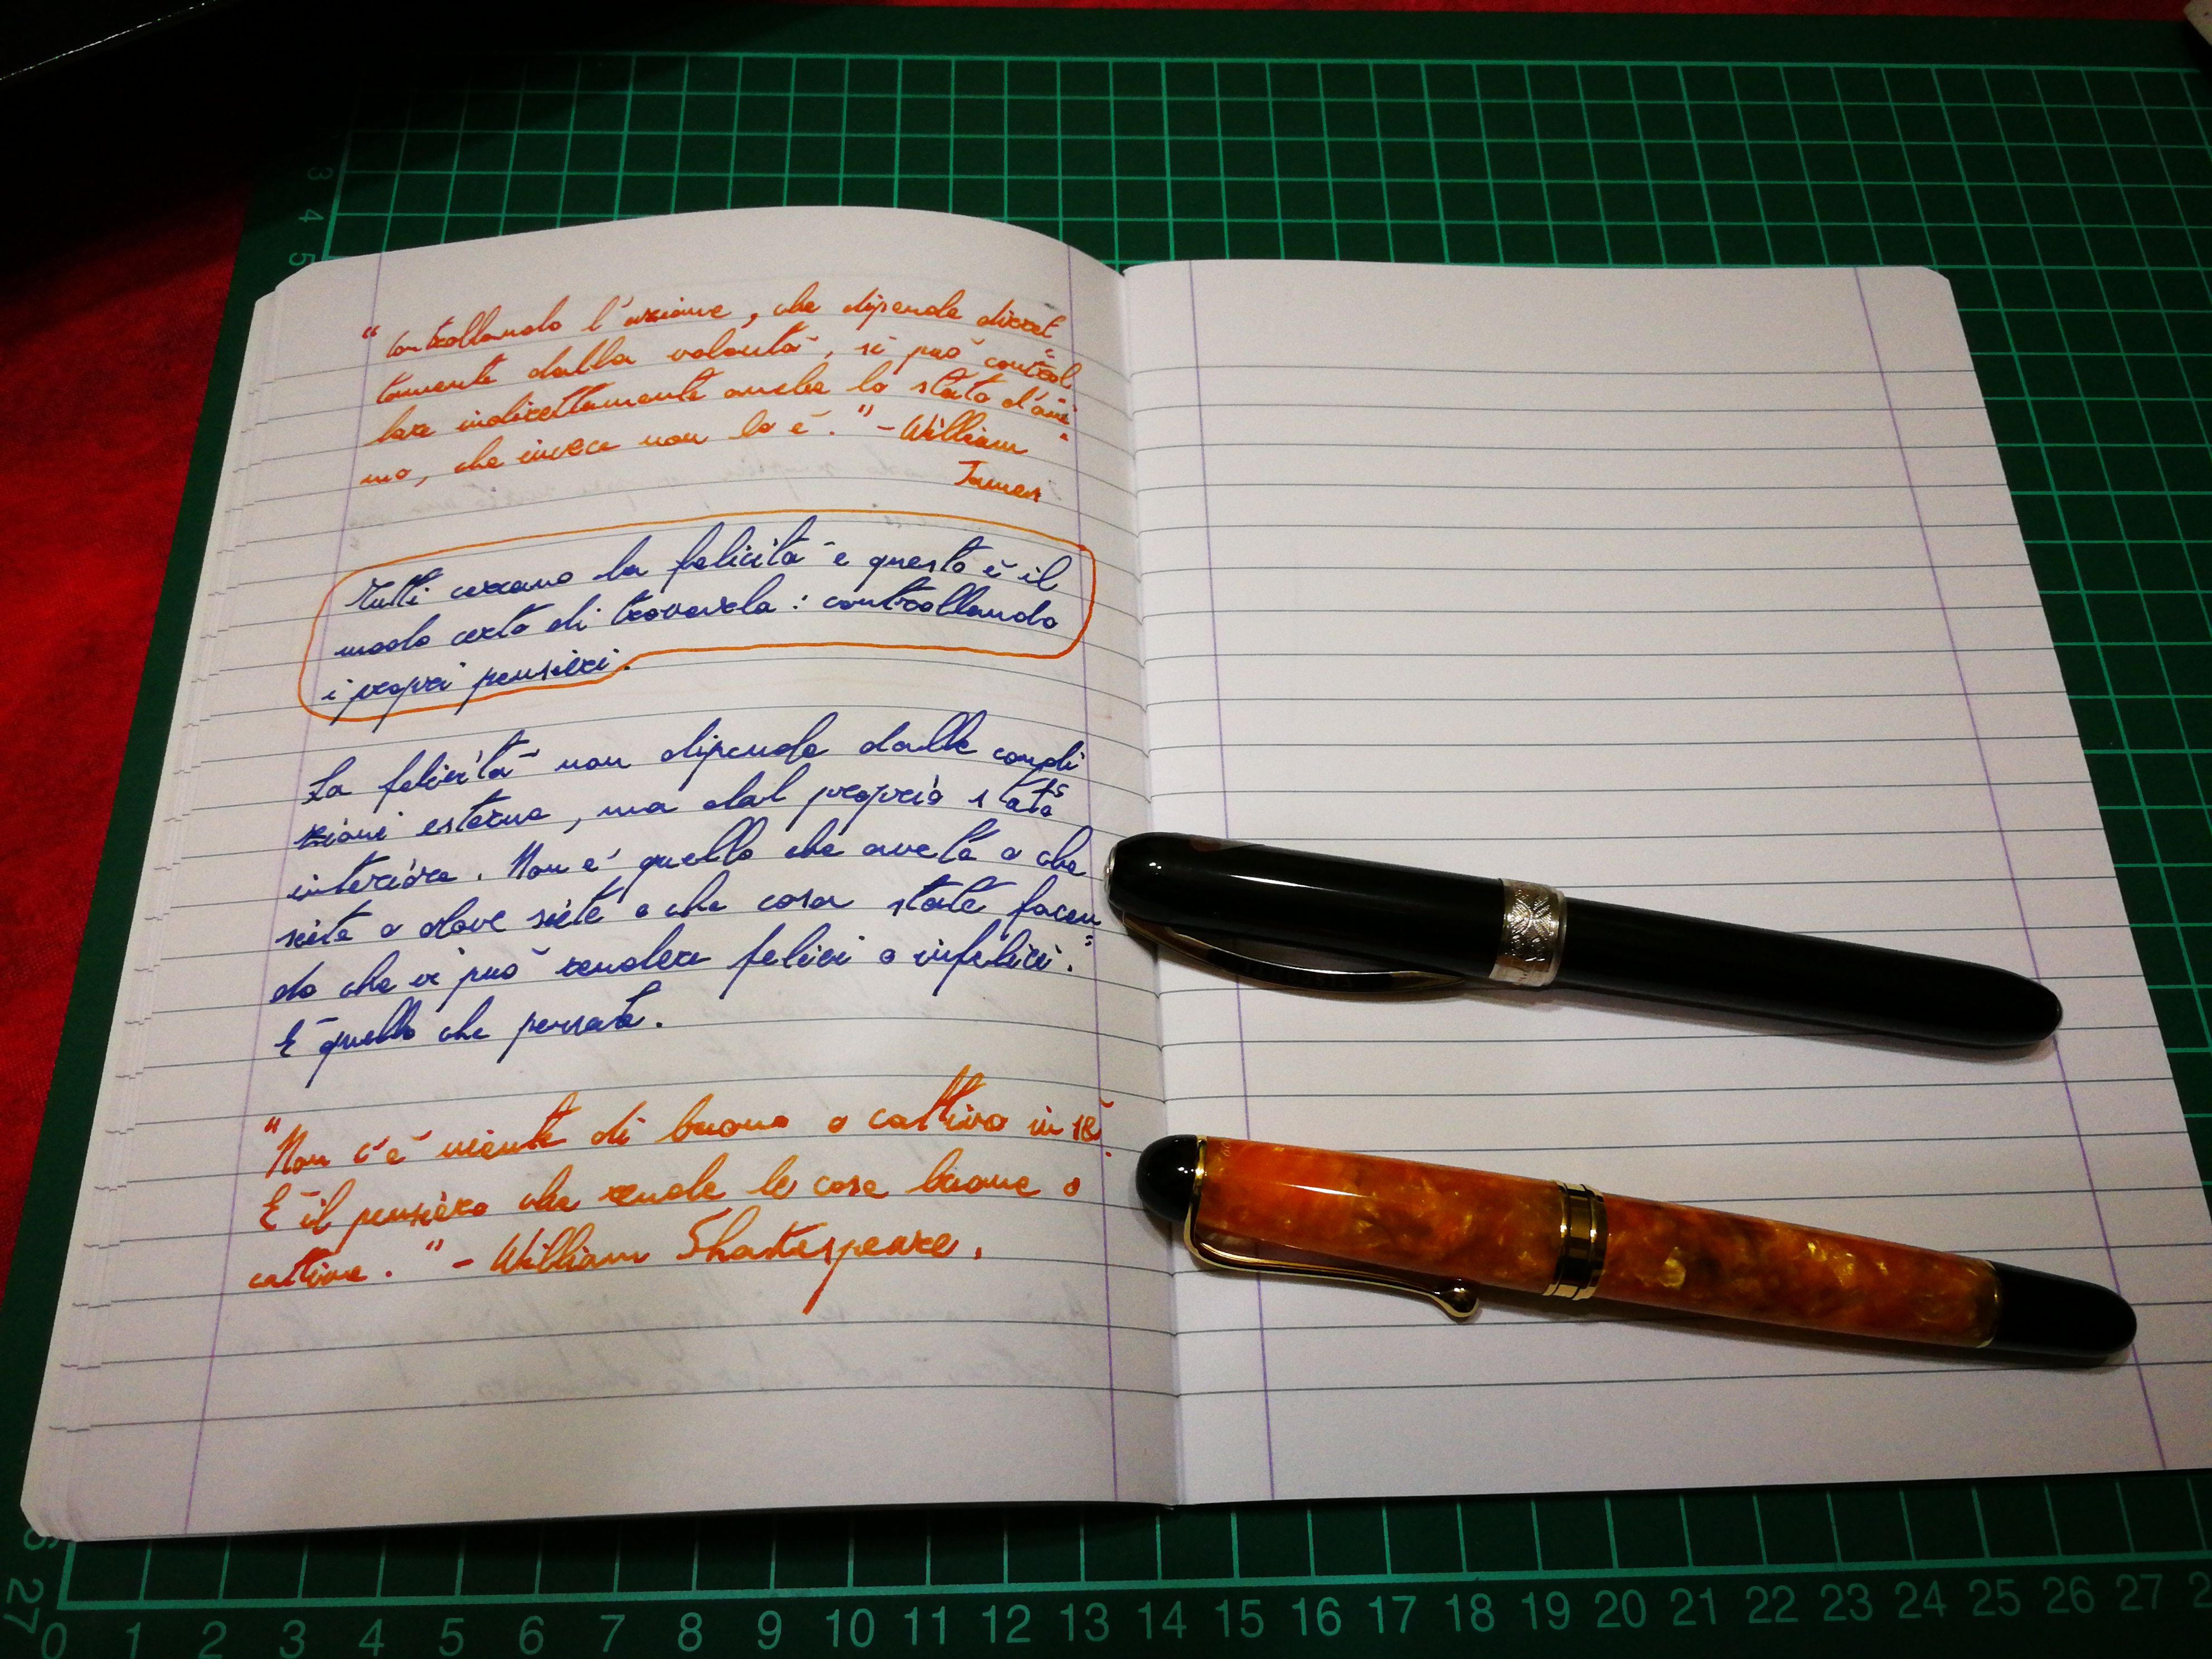 "Controllando l'azione, che dipende diret
tamente dalla volontà, si può control
lare indirettamente anche lo stato d'ani
mo, che invece non lo è." - William
James
Tutti cercano la felicità e questo è il
modo certo di trovarla: controllando
i propri pensieri.
La felicità non dipende dalle condi
zioni esterne, ma dal proprio stato
interiore. Non è quello che avete o che
siete o dove siete o che cosa state facen
do che vi può rendere felici o infelici.
È quello che pensate.
"Non c'è niente di buono o cattivo in sé.
È il pensiero che rende le cose buone o
cattive." - William Shakespeare.
3
4
5
27
0 1 2 3 4 5 6 7 8 9 10 11 12 13 14 15 16 17 18 19 20 21 22 23 24 25 26 27